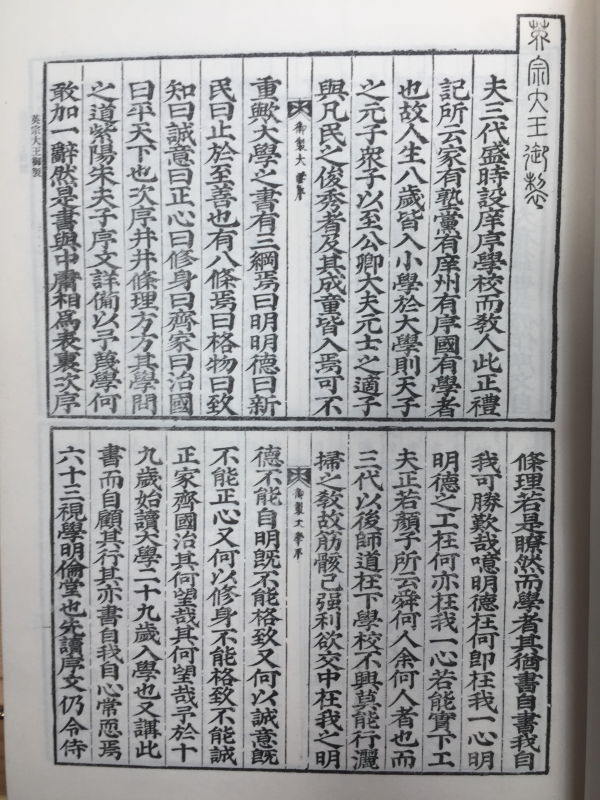 英宗大王御製
夫三代盛時設庠序學校而敎人此正禮
記所云家有塾黨有庠州有序國有學者
也故人生八歲皆入小學於大學則天子
之元子衆子以至公卿大夫元士之適子
與凡民之俊秀者及其成童皆入焉可不
御製大學序
重歟大學之書有三綱焉曰明明德曰新
民曰止於至善也有八條焉曰格物曰致
知曰誠意曰正心曰修身曰齊家曰治國
曰平天下也次序井井條理方方其學問
之道紫陽朱夫子序文詳備以予蔑學何
敢加一辭然是書與中庸相爲表裏次序
英宗大王御製
條理若是瞭然而學者其猶書自書我自
我可勝歎哉噫明德在何卽在我一心明
明德之工在何亦在我一心若能實下工
夫正若顔子所云舜何人余何人者也而
三代以後師道在下學校不興莫能行灑
掃之敎故筋骸已强利欲交中在我之明
御製大學序
德不能自明旣不能格致又何以誠意旣
不能正心又何以修身不能格致不能誠
正家齊國治其何望哉其何望哉予於十
九歲始讀大學二十九歲入學也又講此
書而自顧其行其亦書自我自心常恧焉
六十三視學明倫堂也先讀序文仍令侍